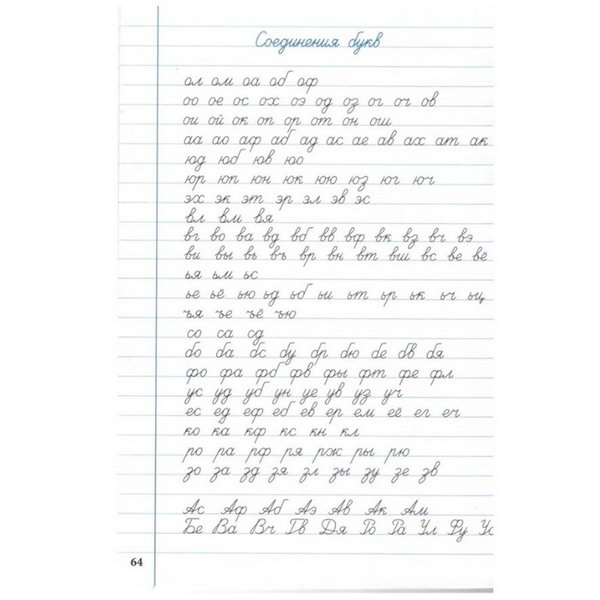 Соединения букв
ол ом оа об оф
оо ое ос ох оэ од оз ог оч ов
ои ой ок оп ор от он ош
аа ао аф аб ад ас ае ав ах ат ак
юд юб юв юо
юр юп юн юк юю юз юг юч
эх эк эт эр эл эв эс
вл вм вя
вг во ва вд вб вв вф вк вз вч вэ
ви вы вь въ вр вн вт вш вс ве вё
ья ьм ьс
ье ьё ью ьд ьб ьи ьт ьр ьк ьч ьщ
ъя ъе ъё ъю
со са сд
бо ба бс бу бр бю бе бв бя
фо фа фб фв фы фт фе фл
ус уд уб ун уе ув уз уч
ес ед еф еб ев ер ем её ег еч
ко ка кф кс кн кл
ро ра рф ря рж ры рю
зо за зд зя зл зы зу зе зв
Ас Аф Аб Аэ Ав Ак Ам
Бе Ва Вч Гв Дя Ро Ра Ул Фу Ус
64